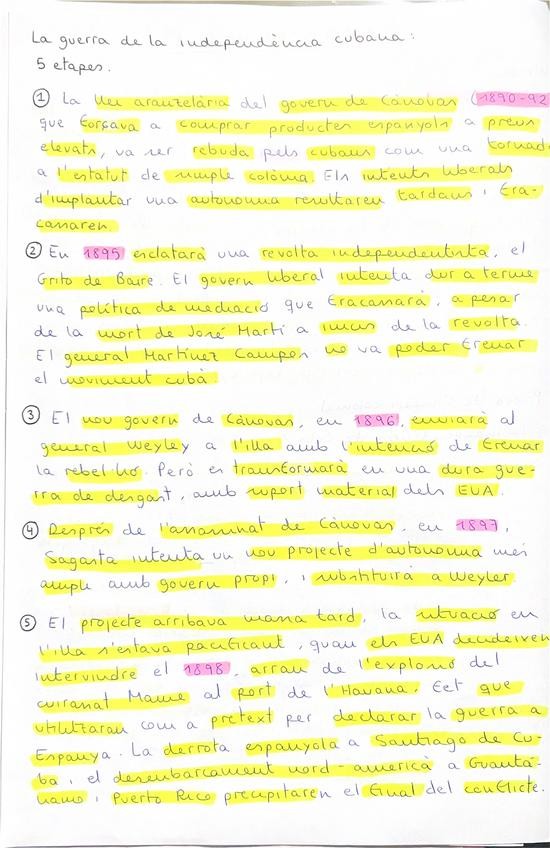 La guerra de la independència cubana:
5 etapes.
① La llei aranzelària del govern de Cànovas (1890-92
que forçava a comprar productes espanyols a preus
elevats, va ser rebuda pels cubans com una tornad
a l'estatut de simple colònia. Els intents liberals
d'implantar una autonomia resultaren tardans i fra-
cassaren
② En 1895 esclatarà una revolta independentista, el
Grito de Baire. El govern liberal intenta dur a terme
una política de mediació que fracassarà, a pesar
de la mort de José Martí a inicis de la revolta.
El general Martínez Campos no va poder frenar
el moviment cubà.
③ El nou govern de Cànovas, en 1896, enviarà al
general Weyley a l'illa amb l'intenció de frenar
la rebel·lió. Però es transformarà en una dura gue-
rra de desgast, amb suport material dels EUA.
④ Després de l'assassinat de Cànovas, en 1897,
Sagasta intenta un nou projecte d'autonomia més
ample amb govern propi, i substituirà a Weyler.
⑤ El projecte arribava massa tard, la situació en
l'illa s'estava pacificant, quan els EUA decideixen
intervindre el 1898, arran de l'explosió del
cuirassat Maine al port de l'Havana, fet que
utilitzaran com a pretext per declarar la guerra a
Espanya. La derrota espanyola a Santiago de Cu-
ba i el desembarcament nord-americà a Guantá-
namo i Puerto Rico precipitaren el final del conflicte.